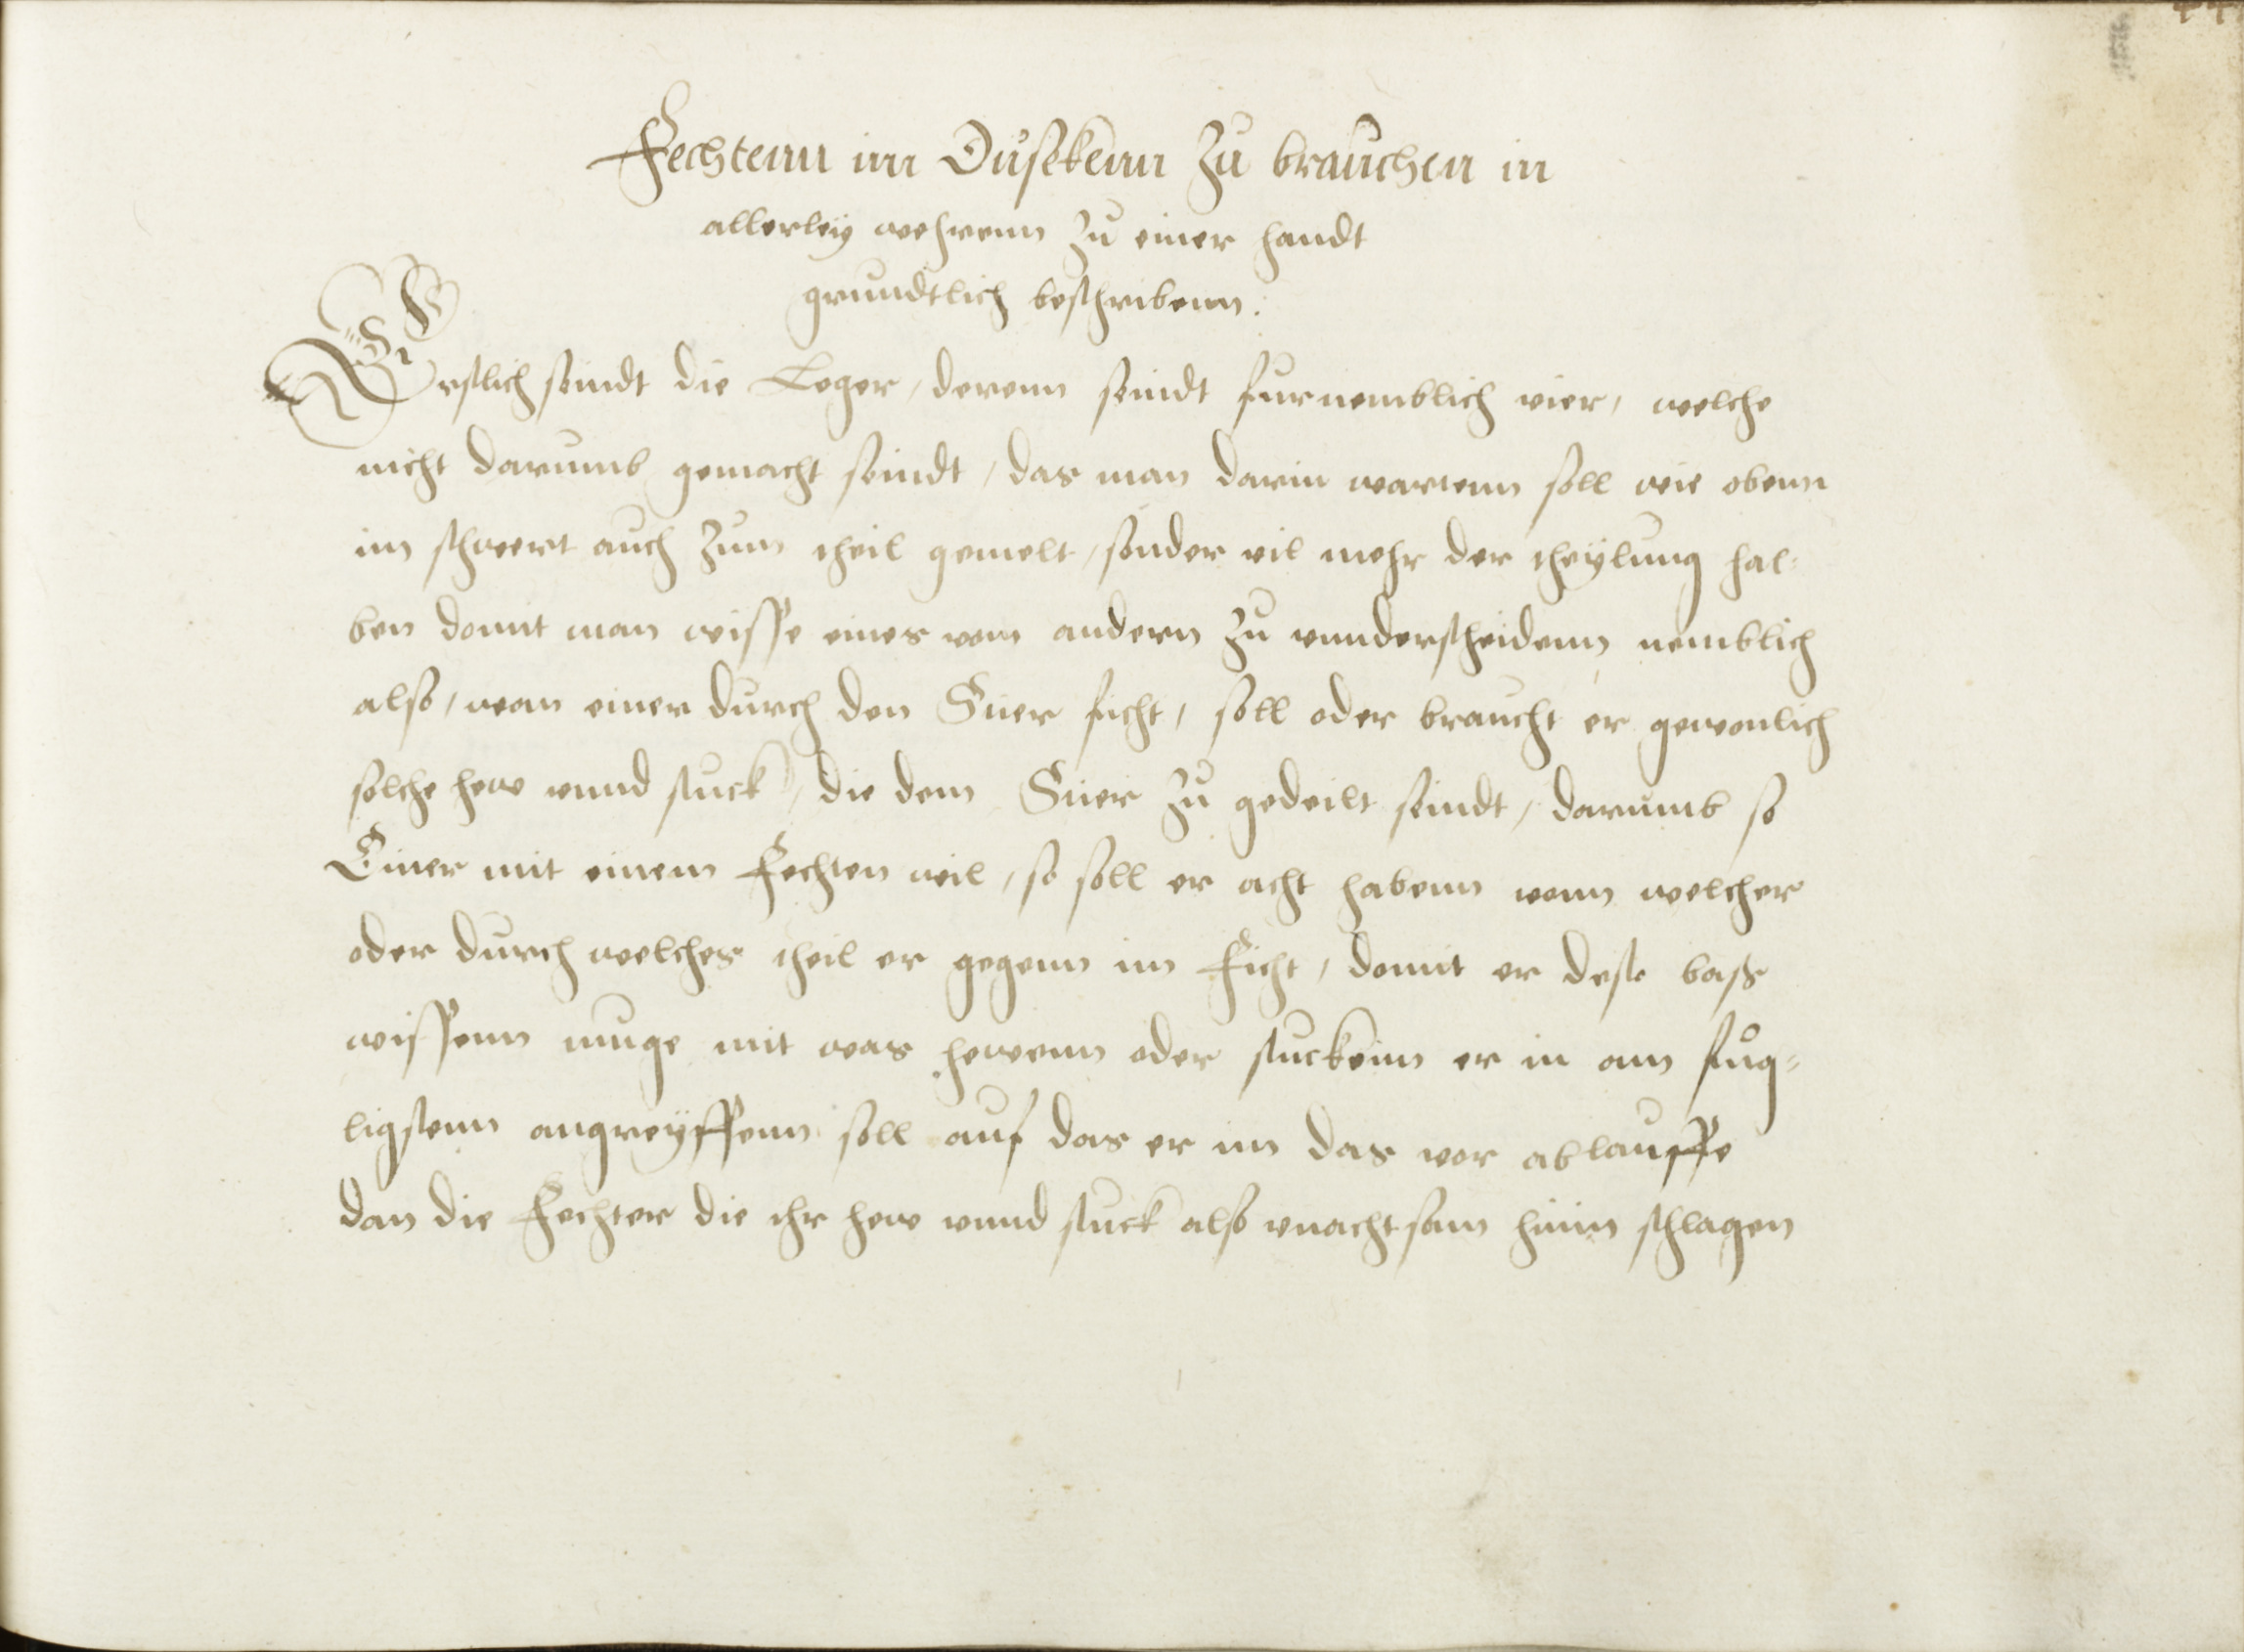 Fechtenn im Dusekenn Zu brauchen in
allerleÿ wehrenn Zu einer handt
grundtlich beschribenn.
Erstlich seindt die Leger, derenn seindt furnemblich vier, welche
nicht darumb gemacht seindt, das man darin wartenn soll wie obenn
im schwert auch Zum theil gemelt, sonder vil mehr der theÿlung hal-
ben domit man wisse eines vom andern Zu vnnderscheidenn nemblich
also, wan einer durch den Stier ficht, soll oder braucht er gewonlich
solche hew vnnd stuck, die dem Stier Zu gedeilt seindt, darumb so
Einer mit einem Fechten wil, so soll er acht habenn vonn welcher
oder durch welches theil er gegenn im Ficht, domit er deste bass
wissenn muge mit was hewenn oder stuckenn er in am fůg-
ligstenn angreÿffenn soll auf das er im das vor ablauffe
dan die Fechter die ihr hew vnnd stuck also vnachtsam hinin schlagen